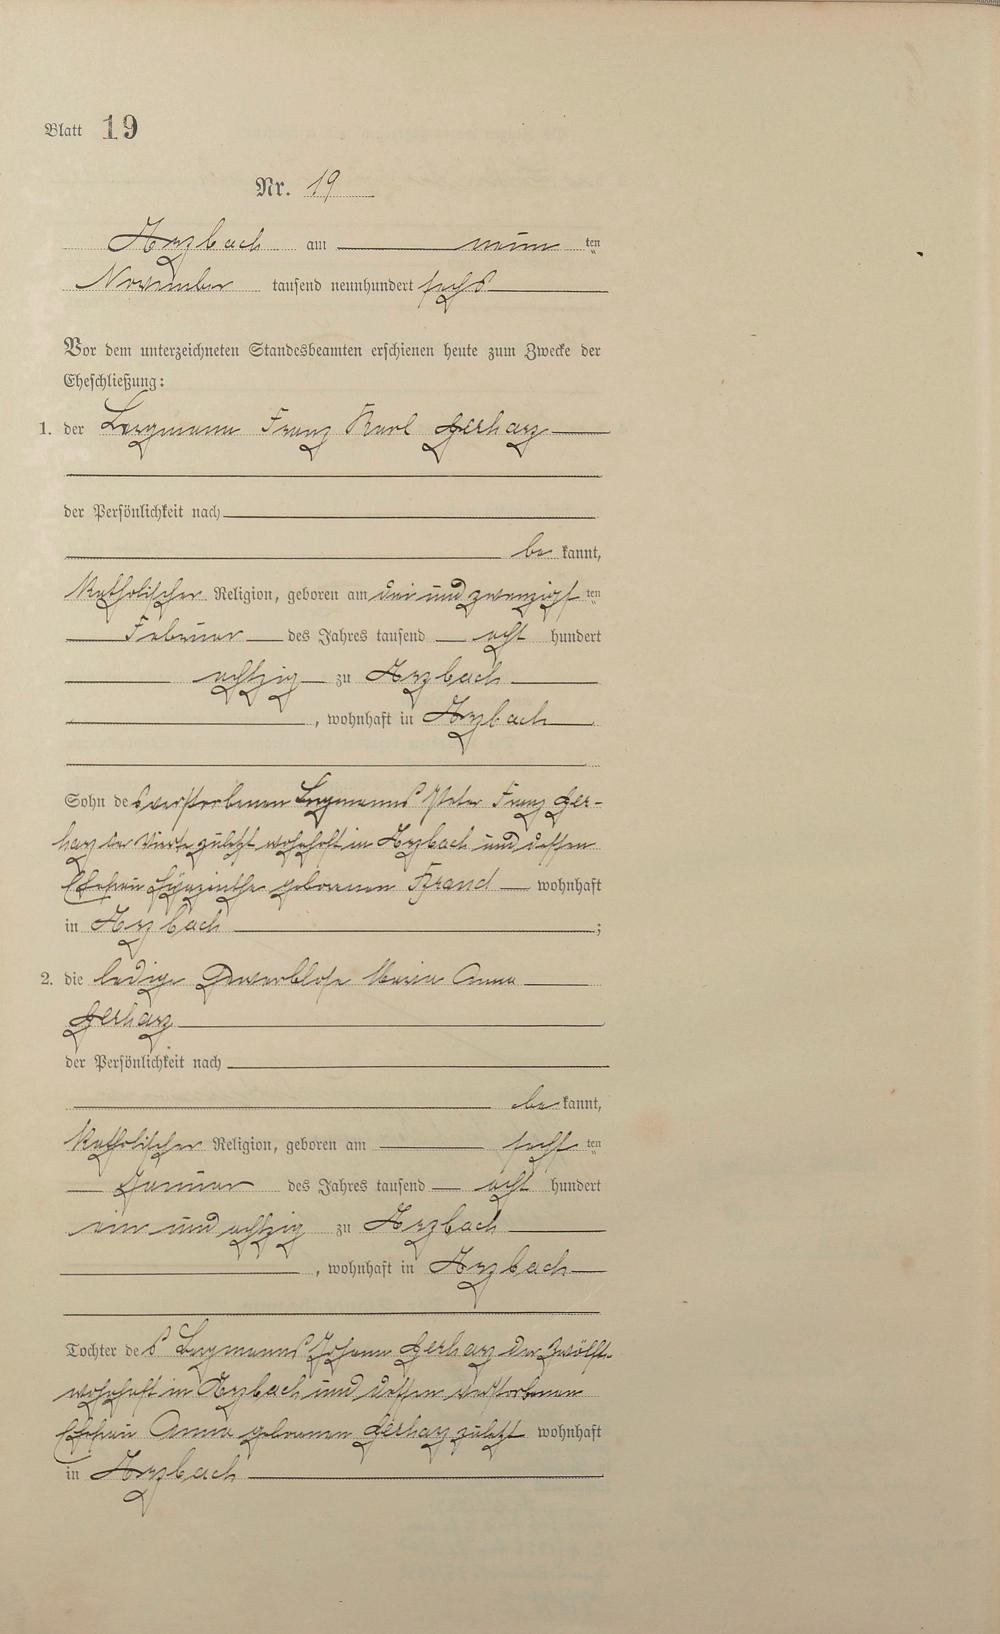 Blatt 19
Nr. 19
Arzbach am neun ten
November tausend neunhundert sechs
Vor dem unterzeichneten Standesbeamten erschienen heute zum Zwecke der
Eheschließung:
1. der Bergmann Franz Karl Gerharz
der Persönlichkeit nach
be kannt,
katholischer Religion, geboren am drei und zwanzigst ten
Februar des Jahres tausend acht hundert
achtzig zu Arzbach
, wohnhaft in Arzbach
Sohn des verstorbenen Bergmanns Peter Franz Ger-
harz der Vierte zuletzt wohnhaft in Arzbach und dessen
Ehefrau Hyazintha geborenen Brand wohnhaft
in Arzbach ;
2. die ledige Gewerblose Maria Anna
Gerharz
der Persönlichkeit nach
be kannt,
katholischer Religion, geboren am sechs ten
Januar des Jahres tausend acht hundert
ein und achtzig zu Arzbach
, wohnhaft in Arzbach
Tochter des Bergmanns Johann Gerharz der Zwölfte
wohnhaft in Arzbach und dessen verstorbenen
Ehefrau Anna geborenen Gerharz zuletzt wohnhaft
in Arzbach